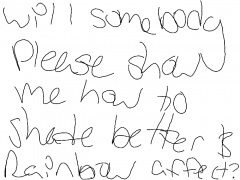 will somebody
Please show
me how to
shade better &
Rainbow affect?